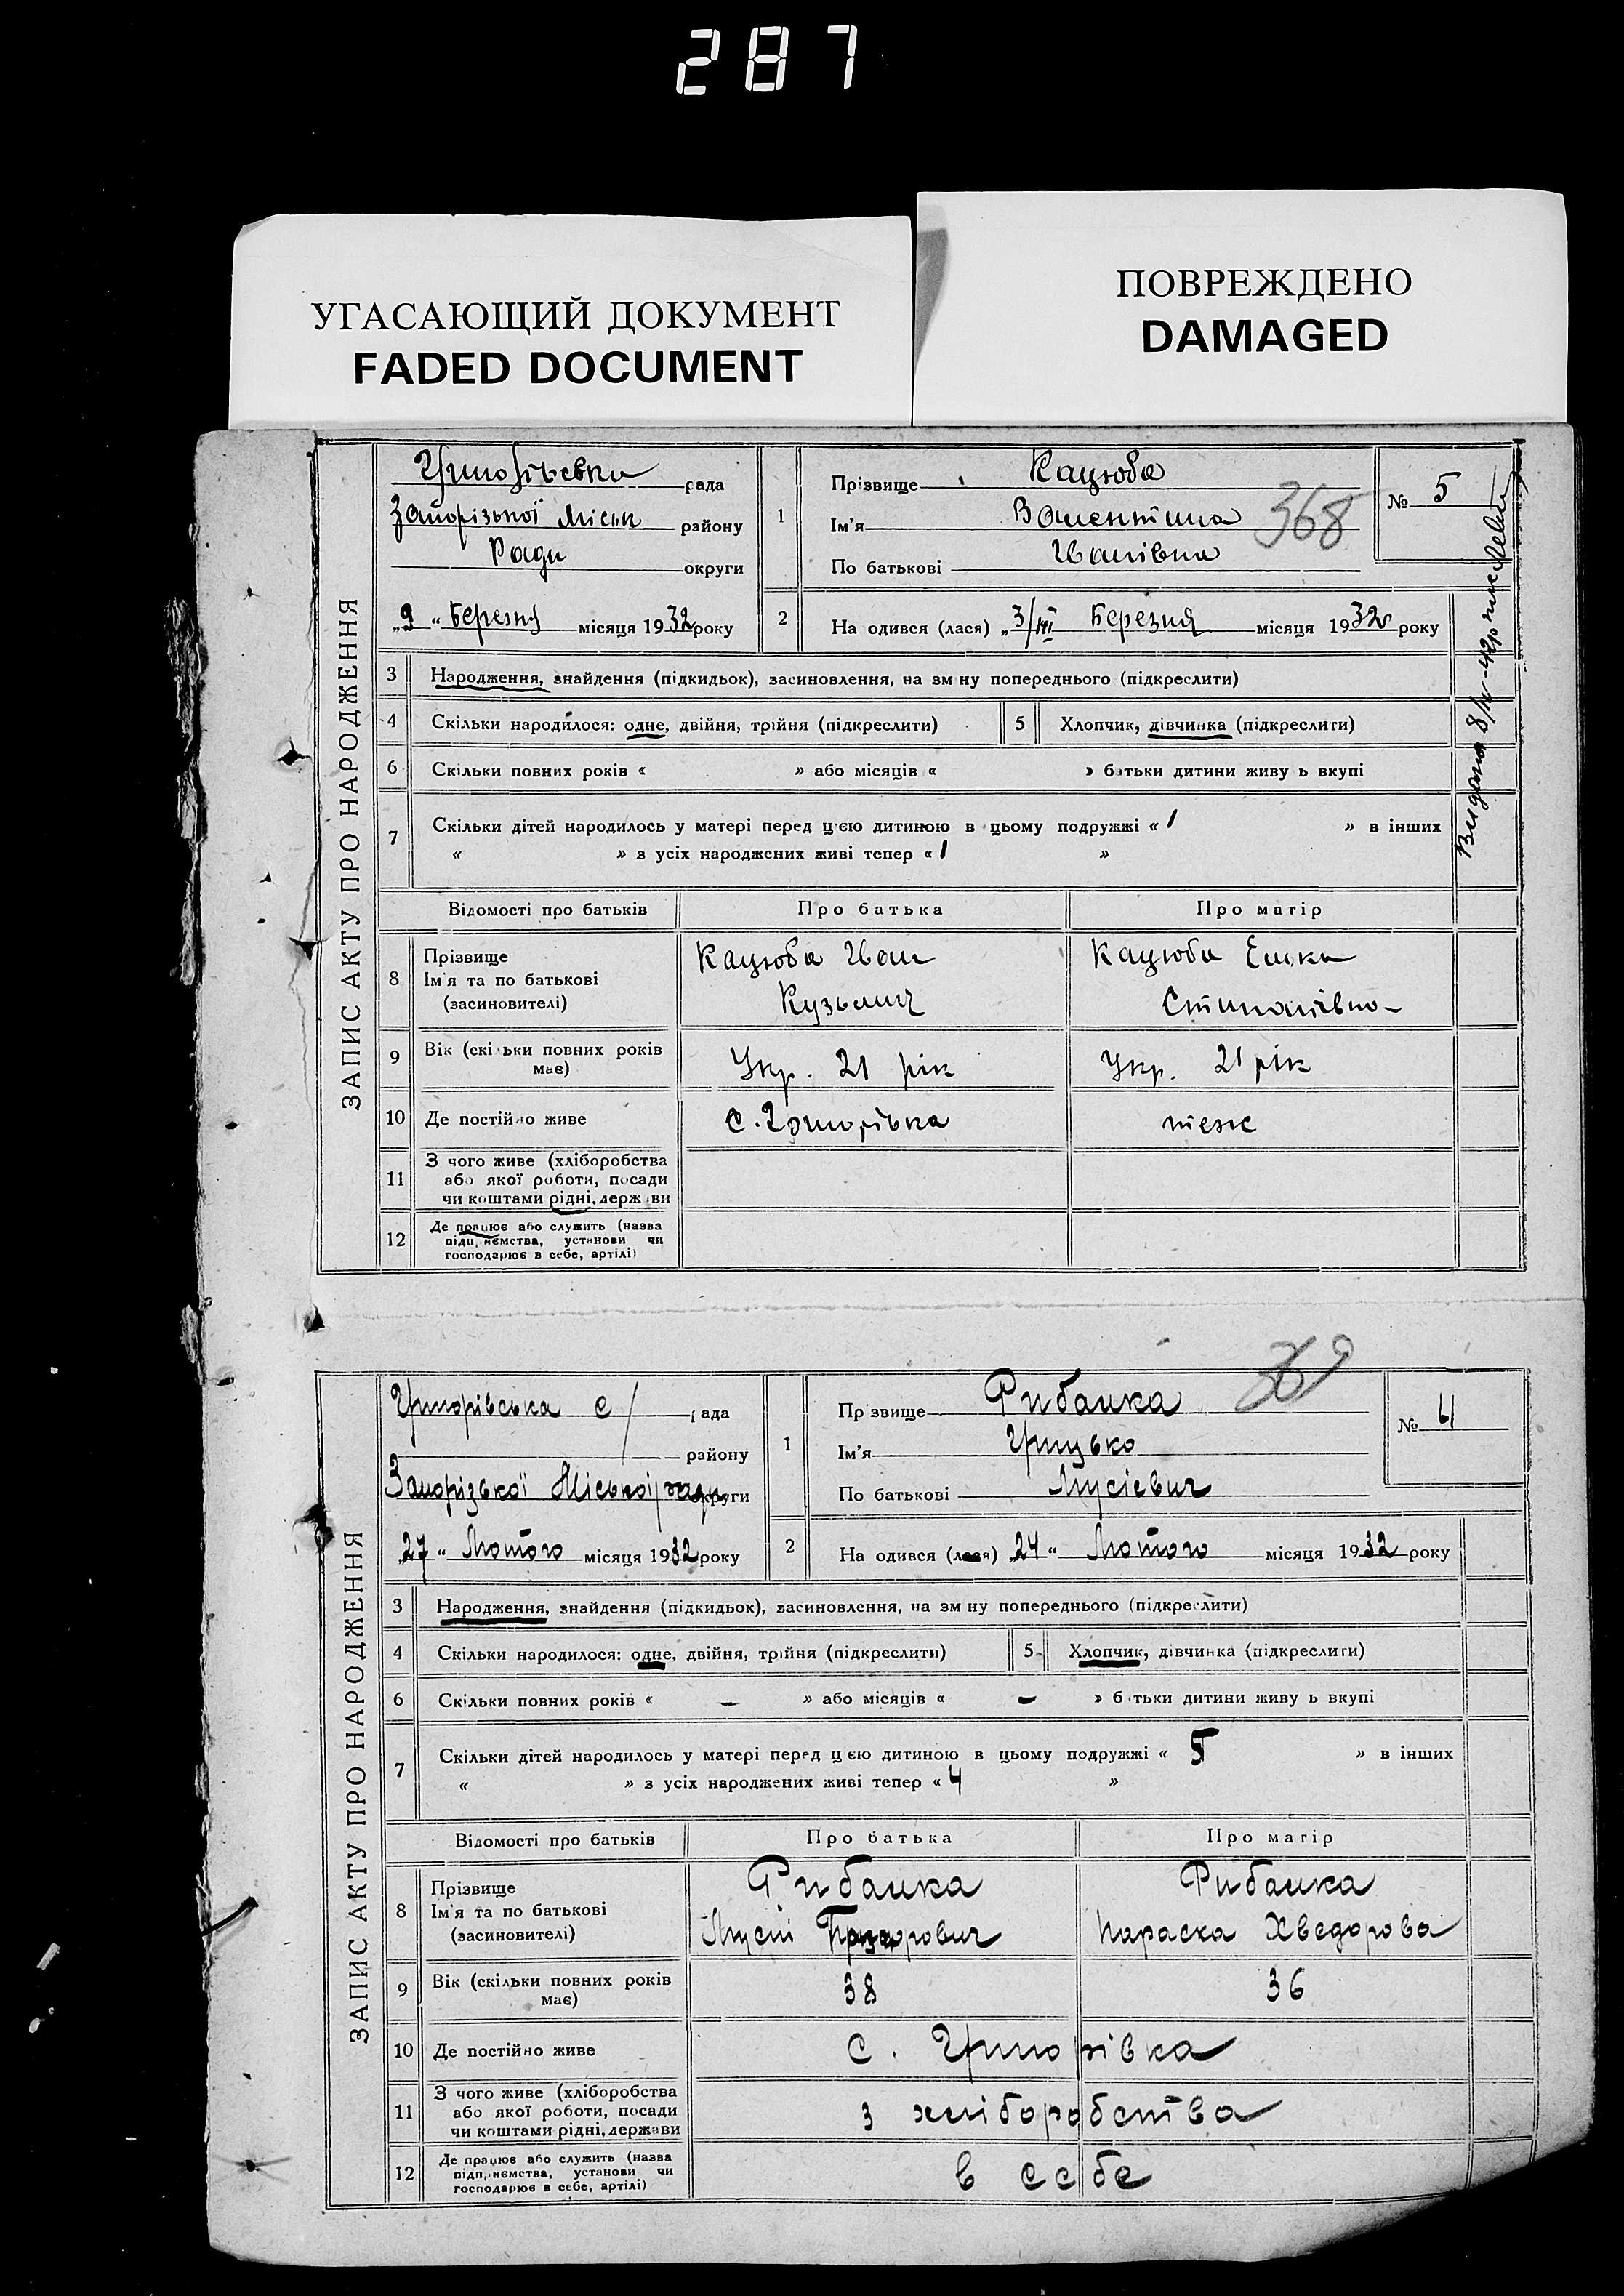 287
УГАСАЮЩИЙ ДОКУМЕНТ
FADED DOCUMENT
ПОВРЕЖДЕНО
DAMAGED
ЗАПИС АКТУ ПРО НАРОДЖЕННЯ
рада
Запорізької Міськ району
Ради округи
„9“ Березня місяця 1932 року
1
Прізвище Кацюба
Ім'я Валентина
По батькові Іванівна
368
№ 5
2
На одився (лася) „3/III Березня місяця 1932 року
Видано
3 Народження, знайдення (підкидьок), засиновлення, на зм ну попереднього (підкреслити)
4 Скільки народилося: одне, двійня, трійня (підкреслити) 5 Хлопчик, дівчинка (підкреслити)
6 Скільки повних років « » або місяців « » батьки дитини живу ь вкупі
7 Скільки дітей народилось у матері перед цією дитиною в цьому подружжі « 1 » в інших
« » з усіх народжених живі тепер « 1 »
Відомості про батьків Про батька Про матір
8 Прізвище
Ім'я та по батькові
(засиновителі)
Кацюба Іван
Кузьмич
Кацюба
Степанівна
9 Вік (скільки повних років
має)
Укр. 21 рік Укр. 21 рік
10 Де постійно живе с. Григорівка теж
11 З чого живе (хліборобства
або якої роботи, посади
чи коштами рідні, держави
12 Де працює або служить (назва
підприємства, установи чи
господарює в себе, артілі)
ЗАПИС АКТУ ПРО НАРОДЖЕННЯ
Григорівська с/ рада
району
Запорізької Міської ради округи
„27“ Лютого місяця 1932 року
1
Пр звище Рибалка
Ім'я Грицько
По батькові Мусієвич
369
№ 4
2
На одився (лася) „24“ Лютого місяця 1932 року
3 Народження, знайдення (підкидьок), засиновлення, на зм ну попереднього (підкреслити)
4 Скільки народилося: одне, двійня, трійня (підкреслити) 5 Хлопчик, дівчинка (підкреслити)
6 Скільки повних років « – » або місяців « – » батьки дитини живу ь вкупі
7 Скільки дітей народилось у матері перед цією дитиною в цьому подружжі « 5 » в інших
« » з усіх народжених живі тепер « 4 »
Відомості про батьків Про батька Про матір
8 Прізвище
Ім'я та по батькові
(засиновителі)
Рибалка
Мусій
Рибалка
Параска Хведорова
9 Вік (скільки повних років
має)
38 36
10 Де постійно живе с. Григорівка
11 З чого живе (хліборобства
або якої роботи, посади
чи коштами рідні, держави
з хліборобства
12 Де працює або служить (назва
підприємства, установи чи
господарює в себе, артілі)
в себе